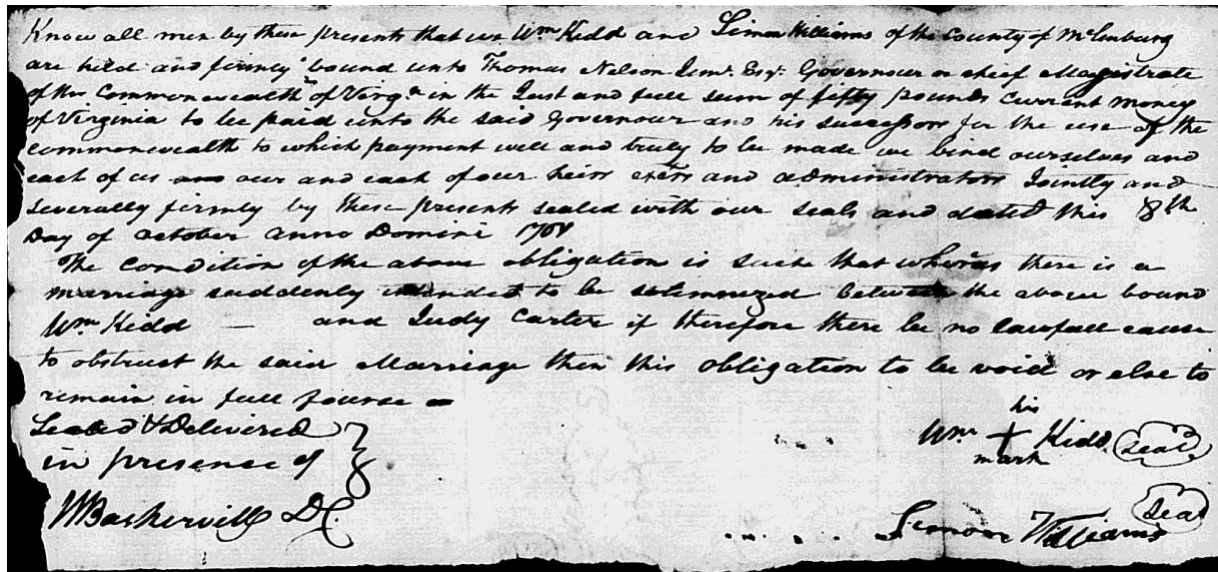 Know all men by these presents that we Wm Kidd and Simon Williams of the County of Mclenburg
are held and firmly bound unto Thomas Nelson Junr. Esqr. Governour or chief Magistrate
of the Commonwealth of Virga in the Just and full sum of fifty pounds current money
of Virginia to be paid unto the said Governour and his successors for the use of the
commonwealth to which payment well and truly to be made we bind ourselves and
each of us our and each of our heirs exers and administrators Jointly and
severally firmly by these presents sealed with our seals and dated this 8th
Day of October Anno Domini 1781
The Condition of the above obligation is such that whereas there is a
marriage suddenly intended to be solemnized between the above bound
Wm Kidd — and Judy Carter if therefore there be no lawfull cause
to obstruct the said Marriage then this obligation to be void or else to
remain in full fource
Sealed & Delivered
in presence of
WBaskervill DC.
his
Wm + Kidd seal
mark
Simon Williams seal